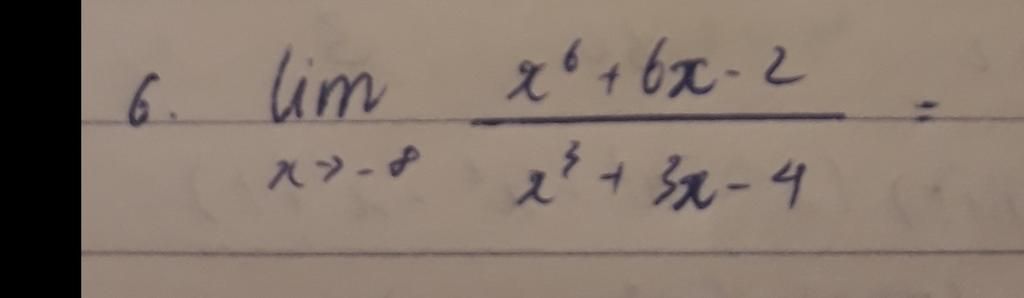 6. lim x→-8 (x⁶ + 6x - 2) / (x³ + 3x - 4) =